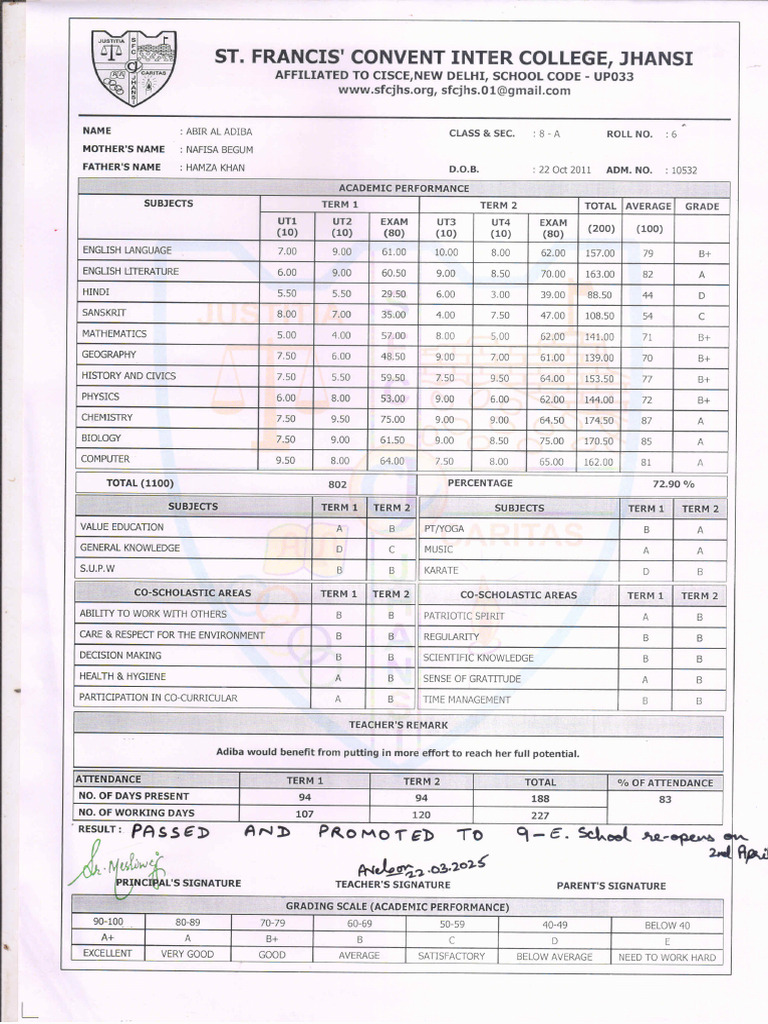 JUSTITIA
SFC
CARITAS
JHANSI
ST. FRANCIS' CONVENT INTER COLLEGE, JHANSI
AFFILIATED TO CISCE,NEW DELHI, SCHOOL CODE - UP033
www.sfcjhs.org, sfcjhs.01@gmail.com
NAME : ABIR AL ADIBA CLASS & SEC. : 8 - A ROLL NO. : 6
MOTHER'S NAME : NAFISA BEGUM
FATHER'S NAME : HAMZA KHAN D.O.B. : 22 Oct 2011 ADM. NO. : 10532
ACADEMIC PERFORMANCE
SUBJECTS TERM 1 TERM 2 TOTAL AVERAGE GRADE
UT1 UT2 EXAM UT3 UT4 EXAM (200) (100)
(10) (10) (80) (10) (10) (80)
ENGLISH LANGUAGE 7.00 9.00 61.00 10.00 8.00 62.00 157.00 79 B+
ENGLISH LITERATURE 6.00 9.00 60.50 9.00 8.50 70.00 163.00 82 A
HINDI 5.50 5.50 29.50 6.00 3.00 39.00 88.50 44 D
SANSKRIT 8.00 7.00 35.00 4.00 7.50 47.00 108.50 54 C
MATHEMATICS 5.00 4.00 57.00 8.00 5.00 62.00 141.00 71 B+
GEOGRAPHY 7.50 6.00 48.50 9.00 7.00 61.00 139.00 70 B+
HISTORY AND CIVICS 7.50 5.50 59.50 7.50 9.50 64.00 153.50 77 B+
PHYSICS 6.00 8.00 53.00 9.00 6.00 62.00 144.00 72 B+
CHEMISTRY 7.50 9.50 75.00 9.00 9.00 64.50 174.50 87 A
BIOLOGY 7.50 9.00 61.50 9.00 8.50 75.00 170.50 85 A
COMPUTER 9.50 8.00 64.00 7.50 8.00 65.00 162.00 81 A
TOTAL (1100) 802 PERCENTAGE 72.90 %
SUBJECTS TERM 1 TERM 2 SUBJECTS TERM 1 TERM 2
VALUE EDUCATION A B PT/YOGA B A
GENERAL KNOWLEDGE D C MUSIC A A
S.U.P.W B B KARATE D B
CO-SCHOLASTIC AREAS TERM 1 TERM 2 CO-SCHOLASTIC AREAS TERM 1 TERM 2
ABILITY TO WORK WITH OTHERS B B PATRIOTIC SPIRIT A B
CARE & RESPECT FOR THE ENVIRONMENT B B REGULARITY B B
DECISION MAKING B B SCIENTIFIC KNOWLEDGE B B
HEALTH & HYGIENE A B SENSE OF GRATITUDE A B
PARTICIPATION IN CO-CURRICULAR A B TIME MANAGEMENT B B
TEACHER'S REMARK
Adiba would benefit from putting in more effort to reach her full potential.
ATTENDANCE TERM 1 TERM 2 TOTAL % OF ATTENDANCE
NO. OF DAYS PRESENT 94 94 188 83
NO. OF WORKING DAYS 107 120 227
RESULT : PASSED AND PROMOTED TO 9-E. School re-opens on
2nd April
22.03.2025
PRINCIPAL'S SIGNATURE TEACHER'S SIGNATURE PARENT'S SIGNATURE
GRADING SCALE (ACADEMIC PERFORMANCE)
90-100 80-89 70-79 60-69 50-59 40-49 BELOW 40
A+ A B+ B C D E
EXCELLENT VERY GOOD GOOD AVERAGE SATISFACTORY BELOW AVERAGE NEED TO WORK HARD